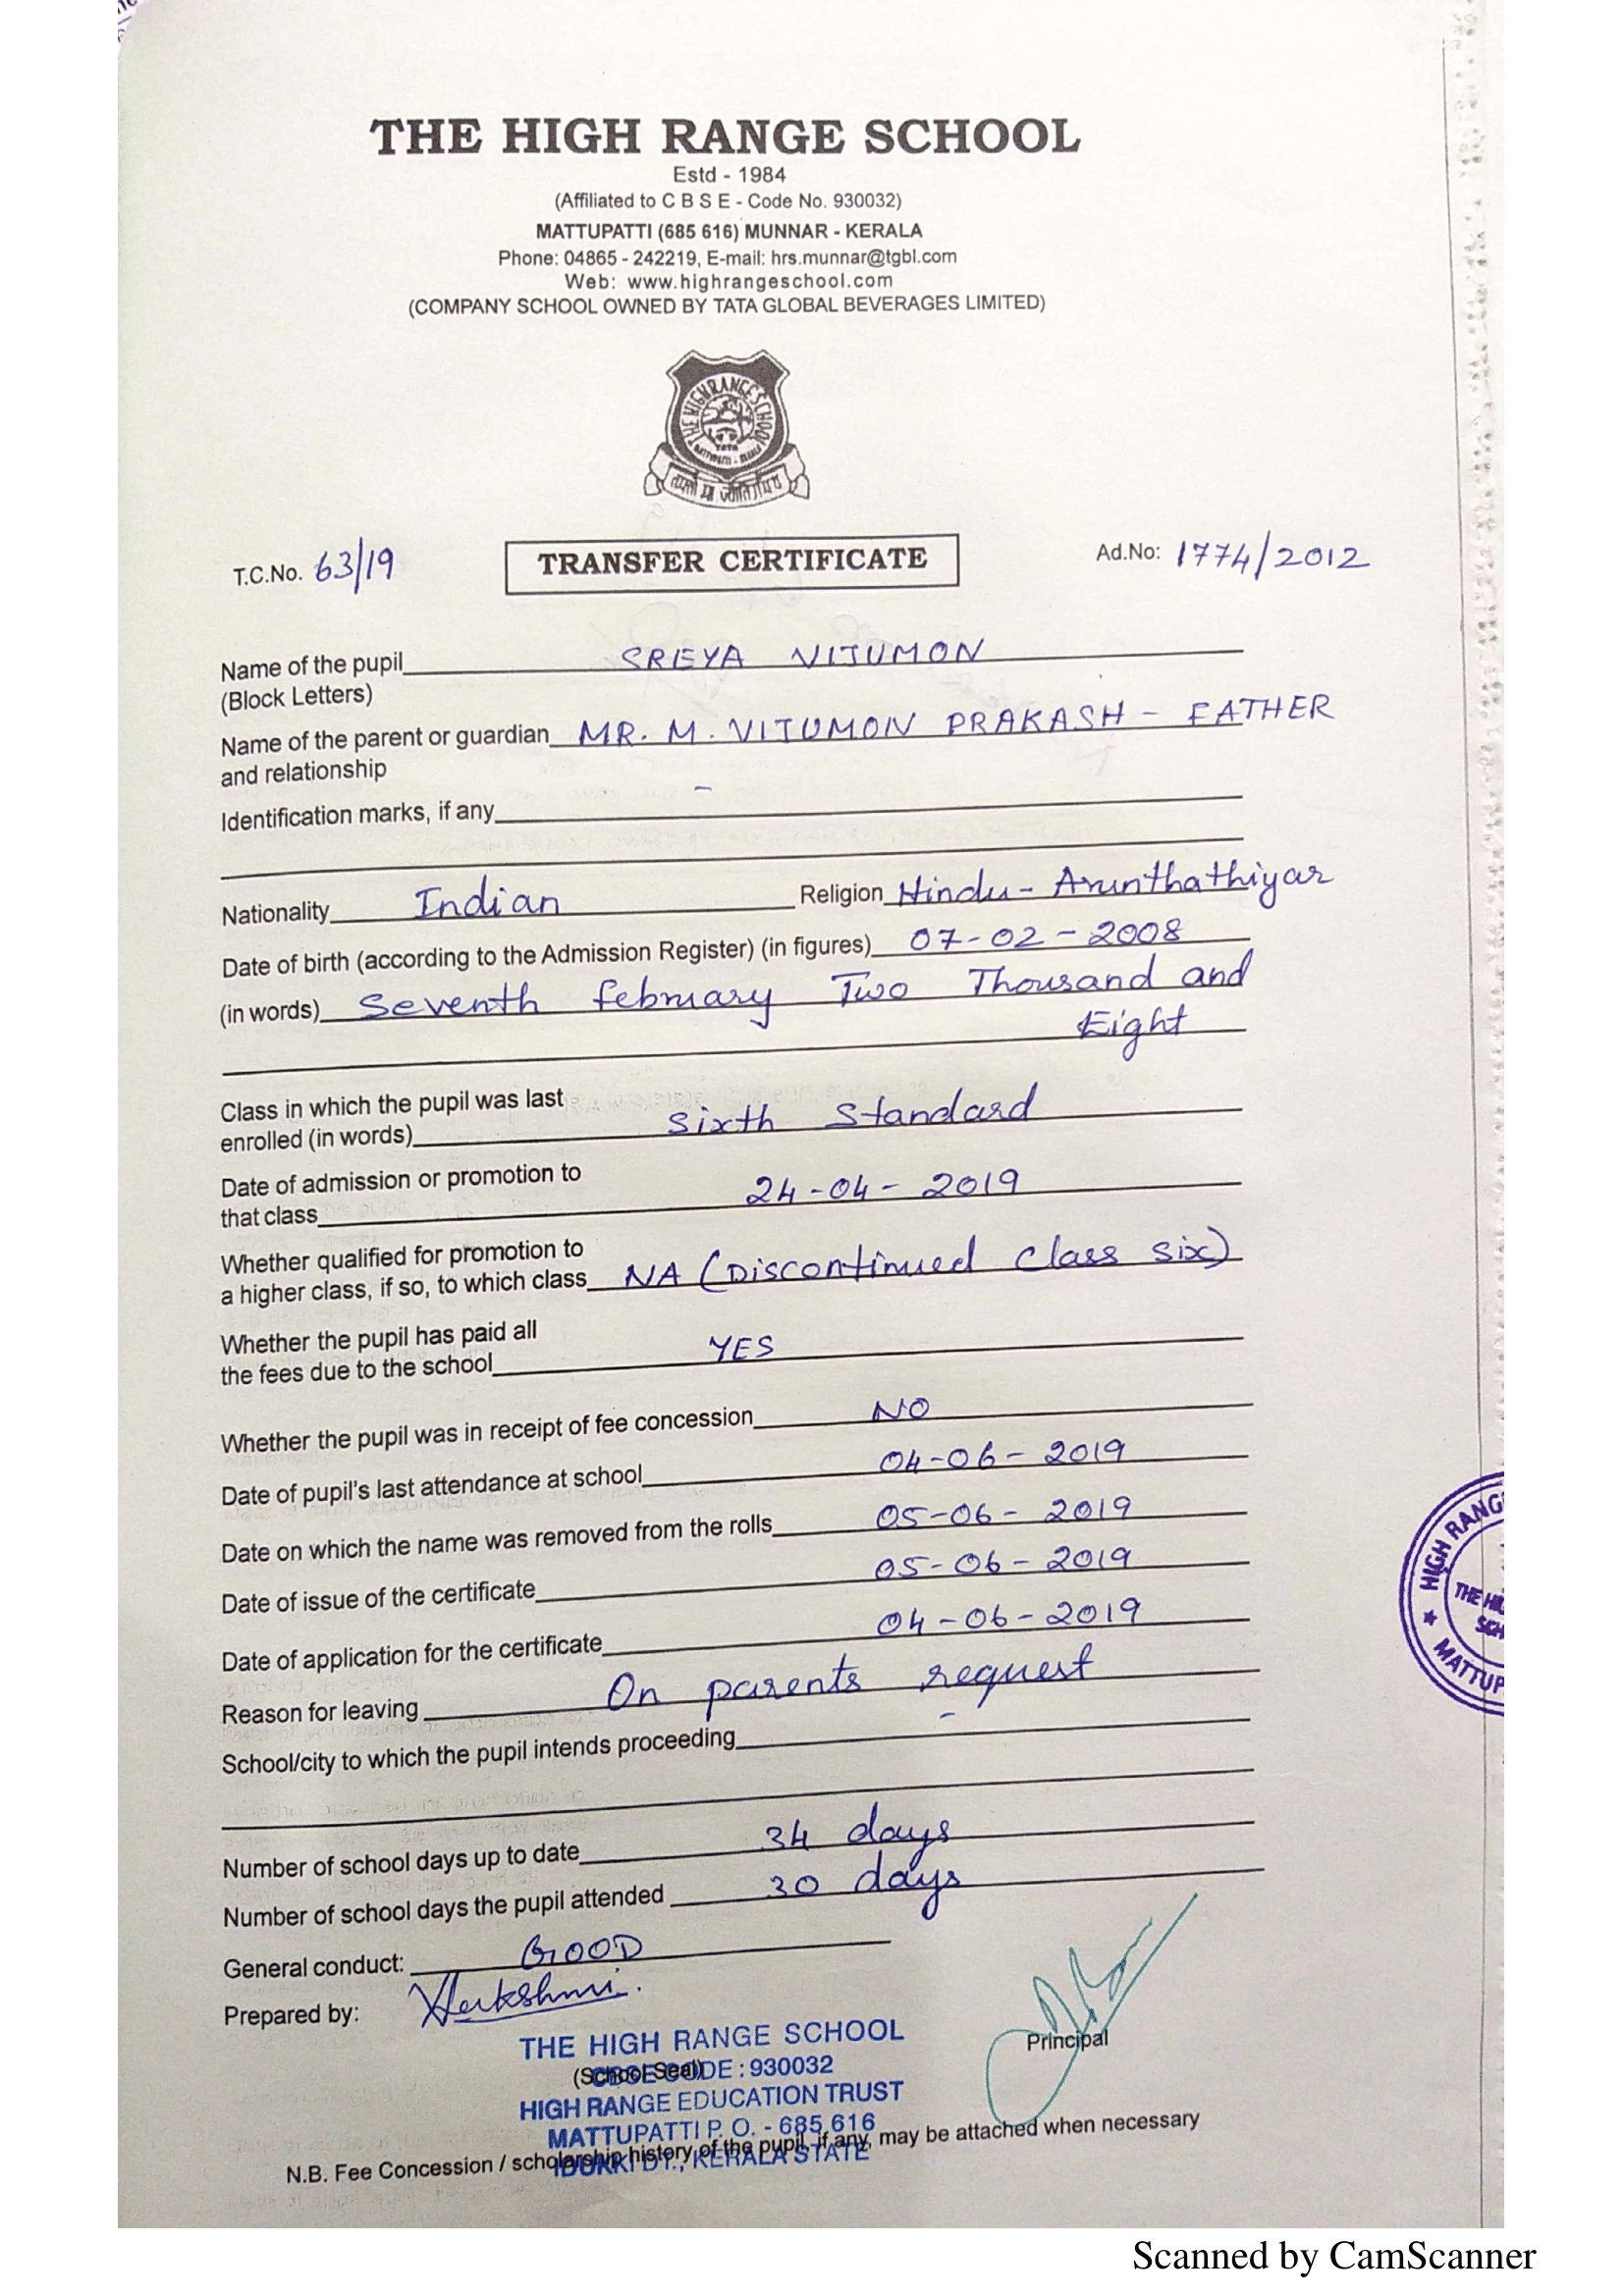 THE HIGH RANGE SCHOOL
Estd - 1984
(Affiliated to C B S E - Code No. 930032)
MATTUPATTI (685 616) MUNNAR - KERALA
Phone: 04865 - 242219, E-mail: hrs.munnar@tgbl.com
Web: www.highrangeschool.com
(COMPANY SCHOOL OWNED BY TATA GLOBAL BEVERAGES LIMITED)
THE HIGH RANGE SCHOOL
TATA
तमसो मा ज्योतिर्गमय
T.C.No. 63/19 TRANSFER CERTIFICATE Ad.No: 1774/2012
Name of the pupil SREYA VIJUMON
(Block Letters)
Name of the parent or guardian MR. M. VIJUMON PRAKASH - FATHER
and relationship
Identification marks, if any -
Nationality Indian Religion Hindu - Arunthathiyar
Date of birth (according to the Admission Register) (in figures) 07-02-2008
(in words) Seventh february Two Thousand and
Eight
Class in which the pupil was last
enrolled (in words) Sixth Standard
Date of admission or promotion to
that class 24-04-2019
Whether qualified for promotion to
a higher class, if so, to which class NA (Discontinued Class six)
Whether the pupil has paid all
the fees due to the school YES
Whether the pupil was in receipt of fee concession NO
Date of pupil's last attendance at school 04-06-2019
Date on which the name was removed from the rolls 05-06-2019
Date of issue of the certificate 05-06-2019
Date of application for the certificate 04-06-2019
Reason for leaving On parents request
School/city to which the pupil intends proceeding -
Number of school days up to date 34 days
Number of school days the pupil attended 30 days
General conduct: GOOD
Prepared by:
Principal
THE HIGH RANGE SCHOOL
(School Seal)
CBSE CODE : 930032
HIGH RANGE EDUCATION TRUST
MATTUPATTI P. O. - 685 616
IDUKKI DT., KERALA STATE
N.B. Fee Concession / scholarship history of the pupil, if any, may be attached when necessary
HIGH RANG
THE HI
SCH
MATTUP
Scanned by CamScanner